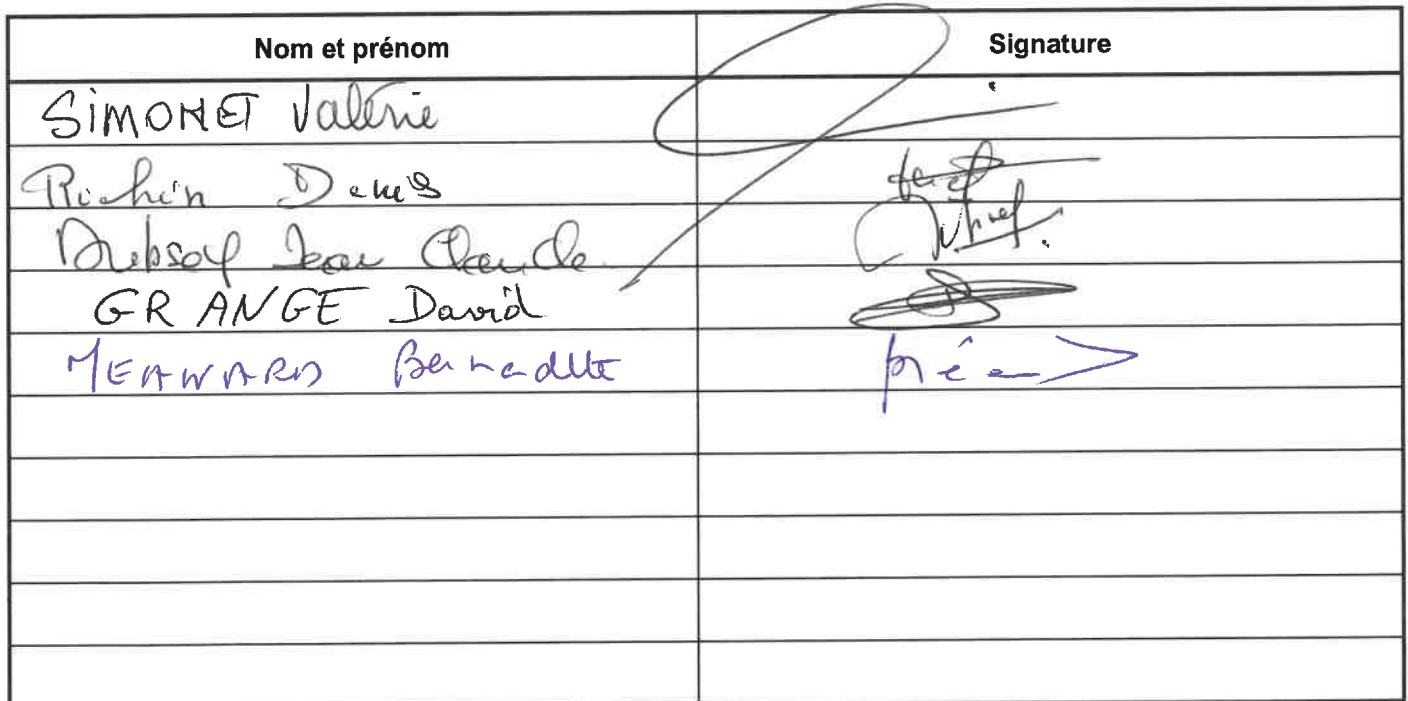 Nom et prénom Signature
SIMONET Valérie
Richin Denis
Jean Claude
GRANGE David
Bernadette